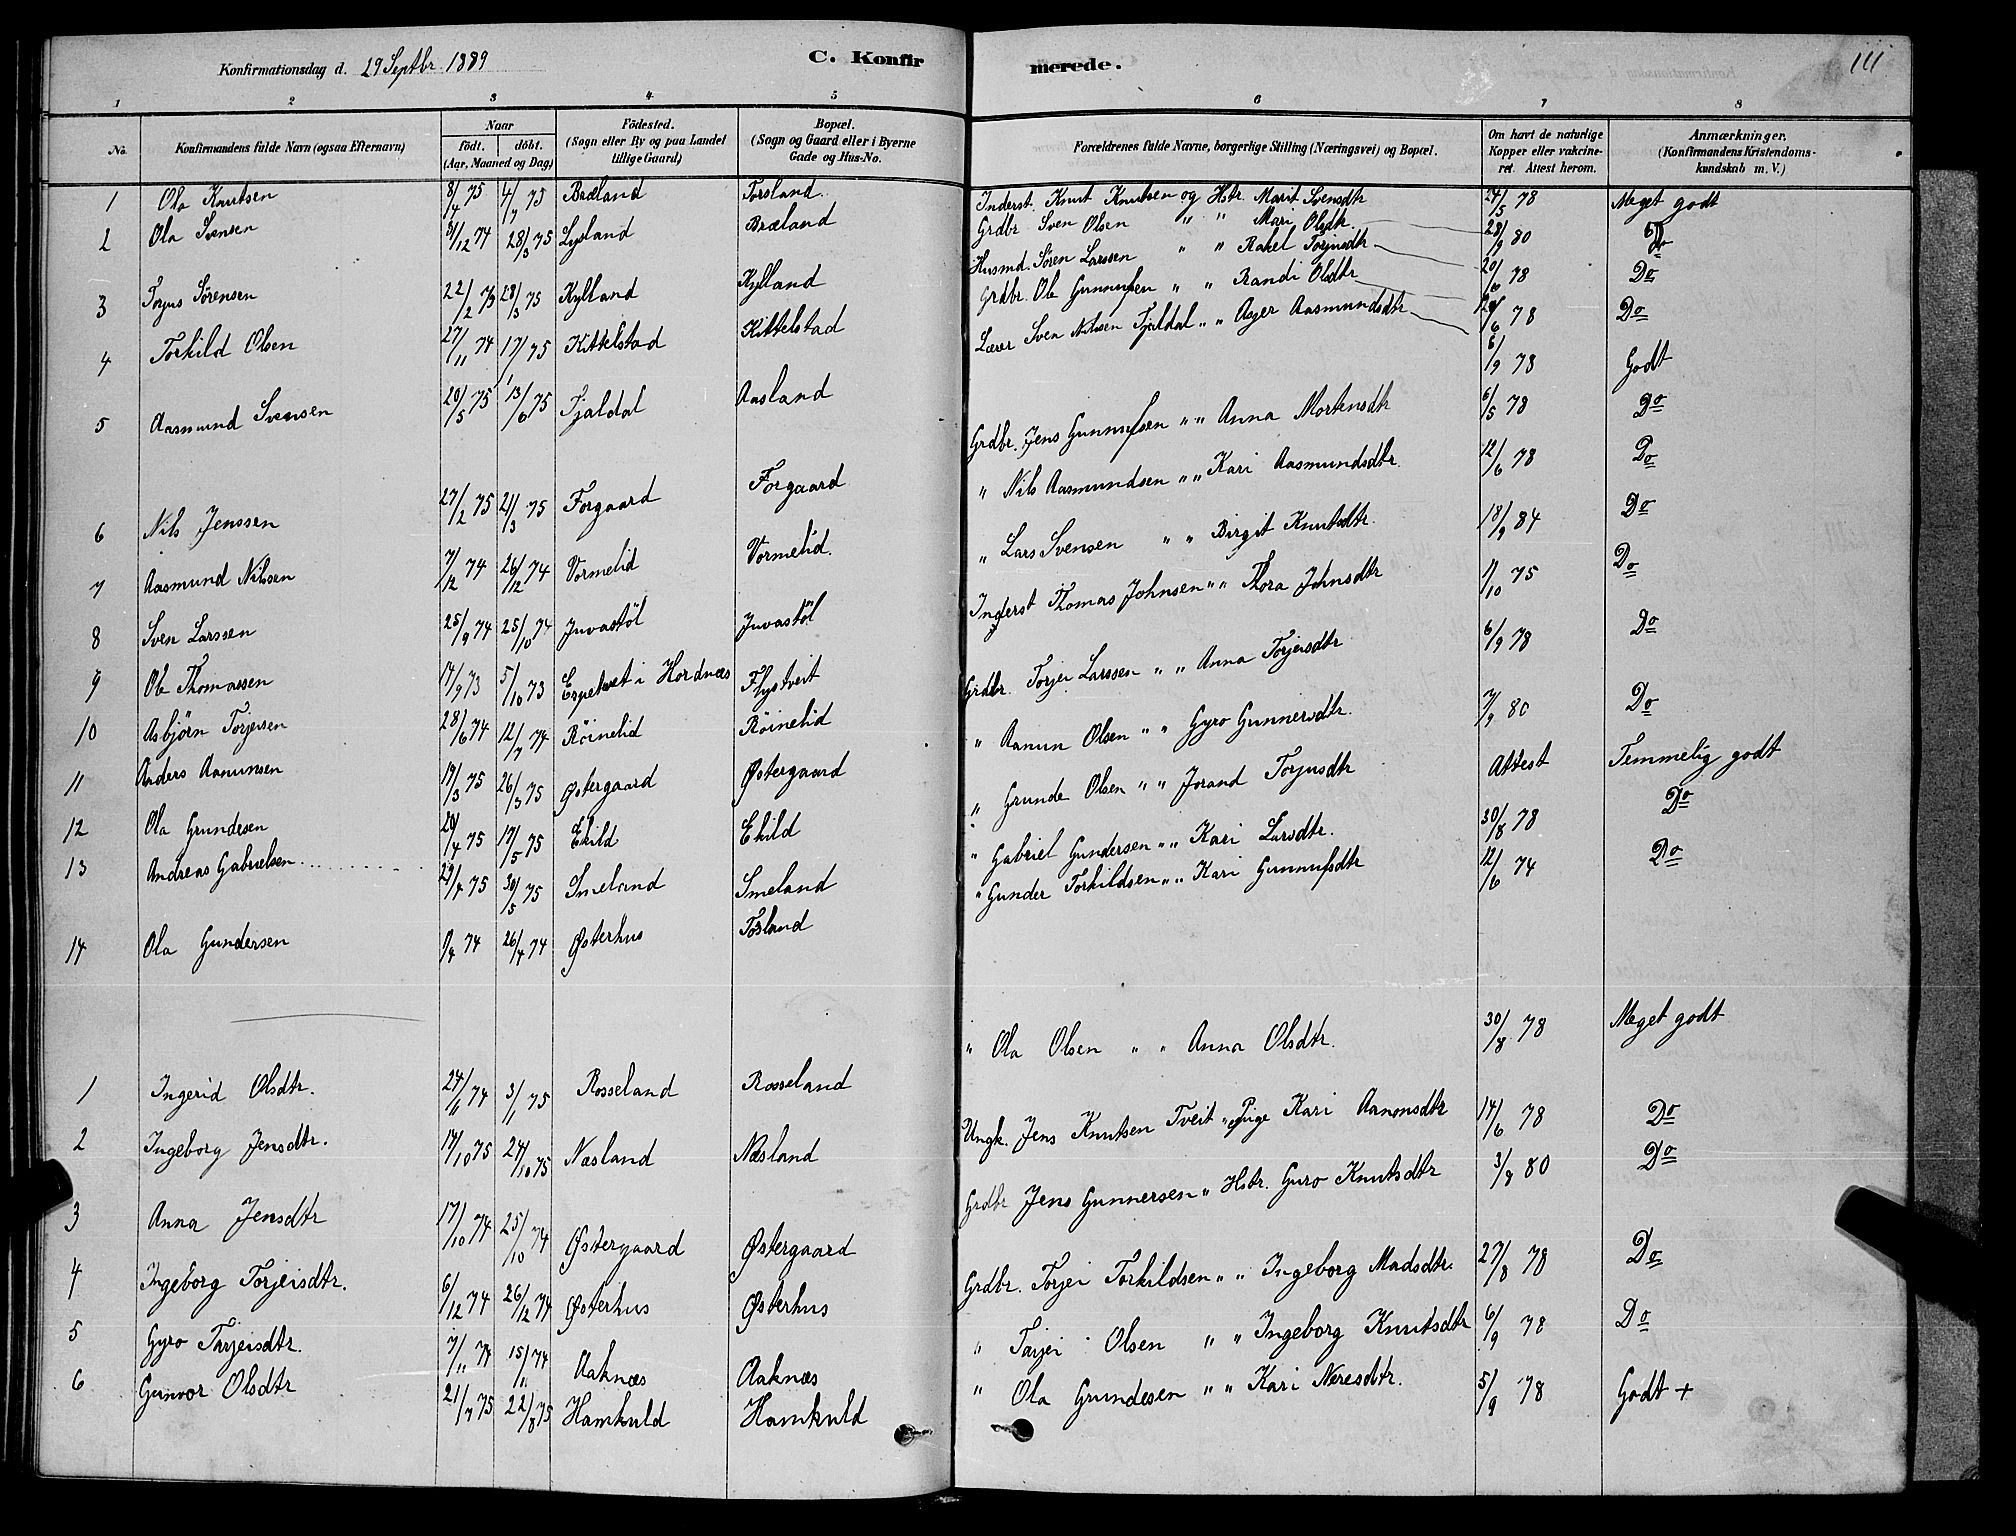 Konfirmationsdag d. 29 Septbr. 1889
C. Konfir
merede.
111
1 2 3 4 5 6 7 8
No.
Konfirmandens fulde Navn (ogsaa Efternavn)
Naar
födt. döbt.
(Aar, Maaned og Dag)
Födested.
(Sogn eller By og paa Landet
tillige Gaard)
Bopæl.
(Sogn og Gaard eller i Byerne
Gade og Hus-No.
Forældrenes fulde Navne, borgerlige Stilling (Næringsvei) og Bopæl.
Om havt de naturlige
Kopper eller vakcine-
ret. Attest herom.
Anmærkninger.
(Konfirmandens Kristendoms-
kundskab m. V.)
1 Ola Knutsen 8/4 75 4/7 75 Bræland Forsland Inderst. Knut Knutsen og Hstr. Marit Svensdtr 24/5 78 Meget godt
2 Ola Svensen 31/12 74 28/3 75 Lysland Bræland Grdbr. Sven Olsen " " Mari Olsdtr. 28/9 80 Do
3 Torjus Sörensen 22/2 28/3 75 Kylland Kylland Husmd. Sören Larssen " " Rakel Torjusdtr 20/6 78 Do
4 Torkild Olsen 27/11 74 17/1 75 Kittelstad Kittelstad Grdbr. Ole Gunnufsen " " Randi Olsdtr 6 78 Do
5 Aasmund Svensen 20/5 75 13/6 75 Fjaldal Aasland Lærer Sven Nilsen Fjaldal " " Asger Aasmundsdtr 6/9 78 Godt
6 Nils Jenssen 27/2 75 21/3 75 Forgaard Forgaard Grdbr. Jens Gunnufsen " " Anna Mortensdtr 6/5 78 Do
7 Aasmund Nilsen 7/12 74 26/12 74 Vormelid Vormelid. " Nils Aasmundsen " " Kari Aasmundsdtr. 12/6 78 Do
8 Sven Larssen 25/9 74 25/10 74 Juvastöl Juvastöl " Lars Svensen " " Birgit Knutsdtr. 18/9 84 Do
9 Ole Thomassen 17/9 73 5/10 73 Espetvet i Hordnæs Flystveit Inderst Thomas Johnsen " " Thora Johnsdtr 1/10 75 Do
10 Asbjörn Torjersen 28/6 74 12/7 74 Röinelid Röinelid Grdbr. Torjer Larssen " " Anna Torjersdtr 6/9 78 Do
11 Anders Aanunsen 19/3 75 26/3 75 Østergaard Østergaard " Aanun Olsen " " Gyro Gunnersdtr. 7/9 80 Do
12 Ola Grundesen 20/4 75 17/5 75 Ekild Ekild " Grunde Olsen " " Jorand Torjusdtr Attest Temmelig godt
13 Andreas Gabrielsen 29/4 75 30/5 75 Smeland Smeland " Gabriel Gundersen " " Kari Larsdtr. 30/8 78 Do
14 Ola Gundersen 74 26/4 74 Østerhus Tosland " Gunder Torkildsen " " Kari Gunnufsdtr 12/6 74 Do
1 Ingerid Olsdtr. 24/6 74 3/1 75 Rosseland Rosseland " Ola Olsen " " Anna Olsdtr. 30/8 78 Meget godt
2 Ingeborg Jensdtr. 17/10 75 24/10 75 Næsland Næsland Ungk. Jens Knutsen Tveit " Pige Kari Aanonsdtr 14/6 78 Do
3 Anna Jensdtr 17/10 74 25/10 74 Østergaard Østergaard Grdbr Jens Gunnersen " Hstr. Guro Knutsdtr 3/9 80 Do
4 Ingeborg Torjeisdtr. 6/12 74 26/12 74 Østerhus Østerhus Grdbr. Torjei Torkildsen " " Ingeborg Madsdtr. 27/8 78 Do
5 Gyro Tarjeisdtr. 7/11 74 15/11 74 Aaknæs Aaknæs " Tarjei Olsen " " Ingeborg Knutsdtr 6/9 78 Do
6 Gunvor Olsdtr 21/7 75 22/8 75 Hamkuld Hamkuld " Ola Grundesen " " Kari Neresdtr. 5/9 78 Godt +